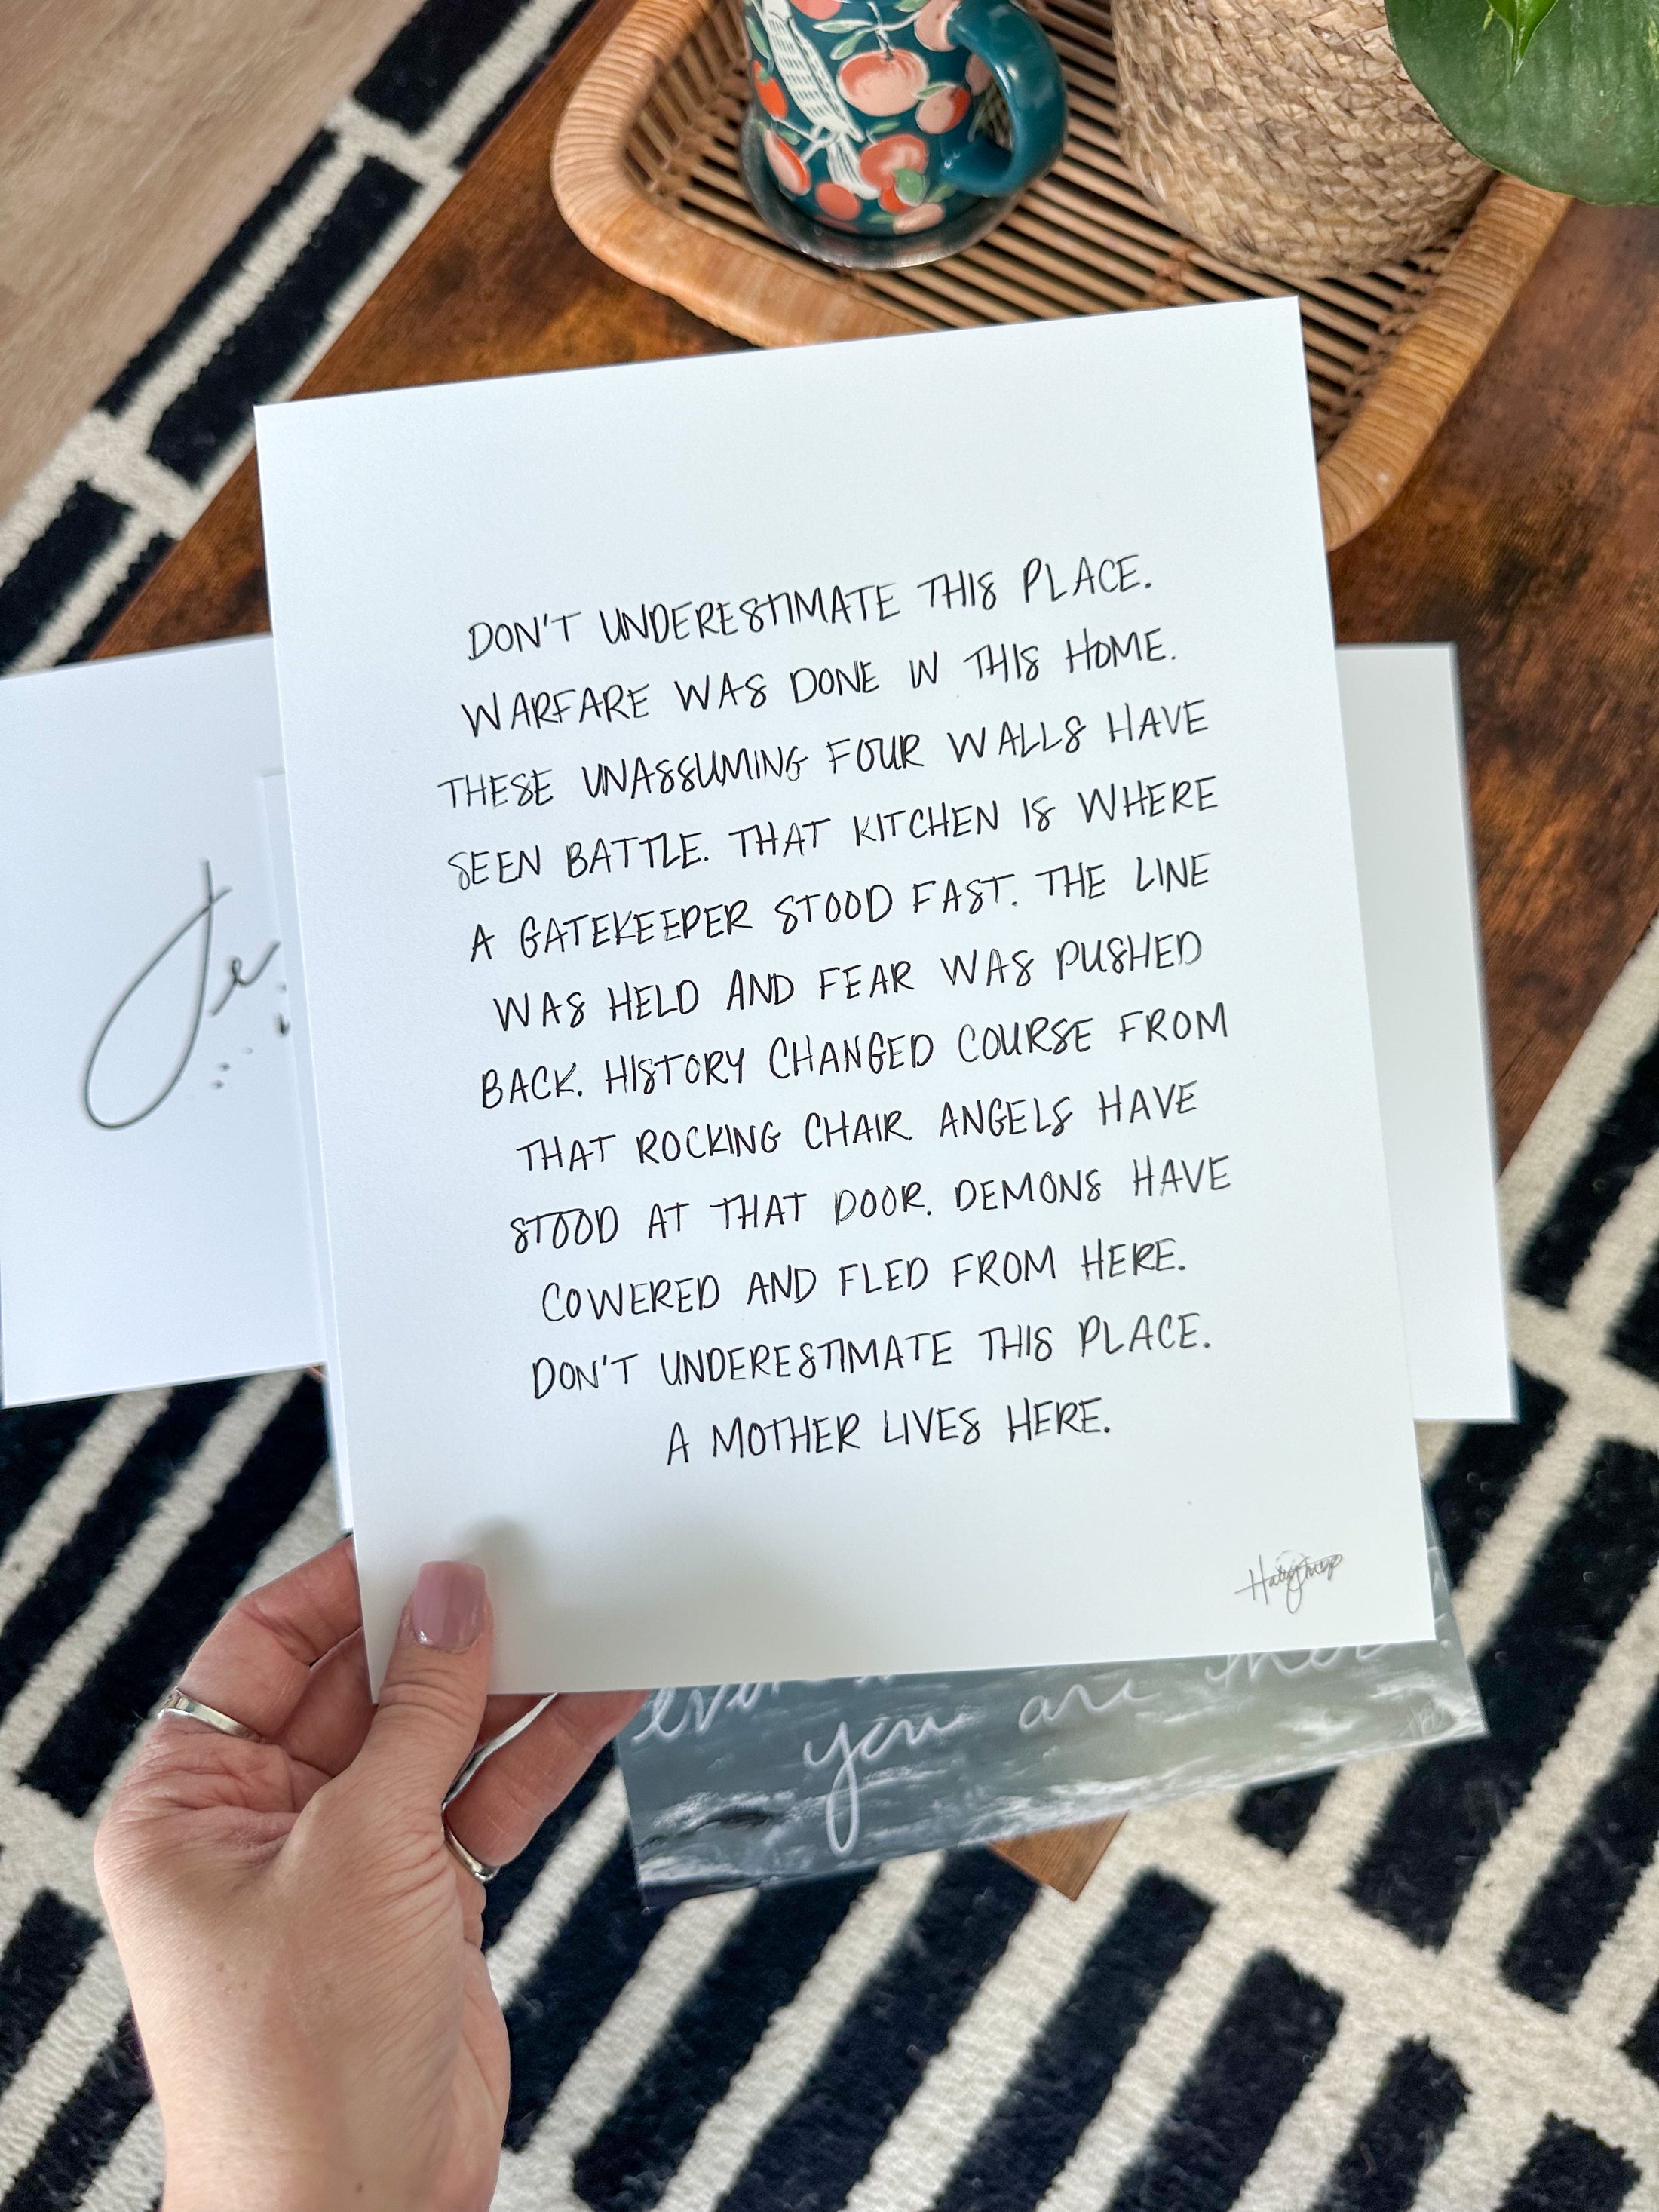 DON'T UNDERESTIMATE THIS PLACE.
WARFARE WAS DONE IN THIS HOME.
THESE UNASSUMING FOUR WALLS HAVE
SEEN BATTLE. THAT KITCHEN IS WHERE
A GATEKEEPER STOOD FAST. THE LINE
WAS HELD AND FEAR WAS PUSHED
BACK. HISTORY CHANGED COURSE FROM
THAT ROCKING CHAIR. ANGELS HAVE
STOOD AT THAT DOOR. DEMONS HAVE
COWERED AND FLED FROM HERE.
DON'T UNDERESTIMATE THIS PLACE.
A MOTHER LIVES HERE.
Je
you are